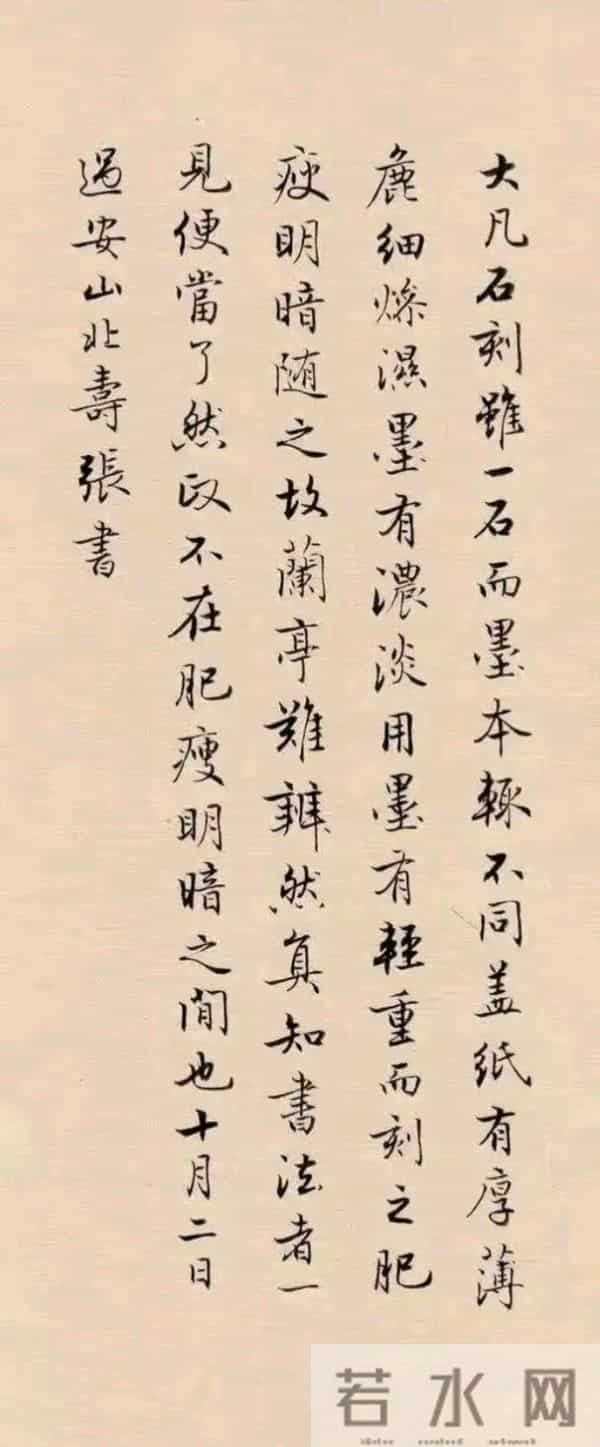 大凡石刻雖一石而墨本輙不同盖紙有厚薄
麁細燥濕墨有濃淡用墨有輕重而刻之肥
瘦明暗随之故蘭亭難辨然真知書法者一
見便當了然政不在肥瘦明暗之間也十月二日
過安山北壽張書
若水网